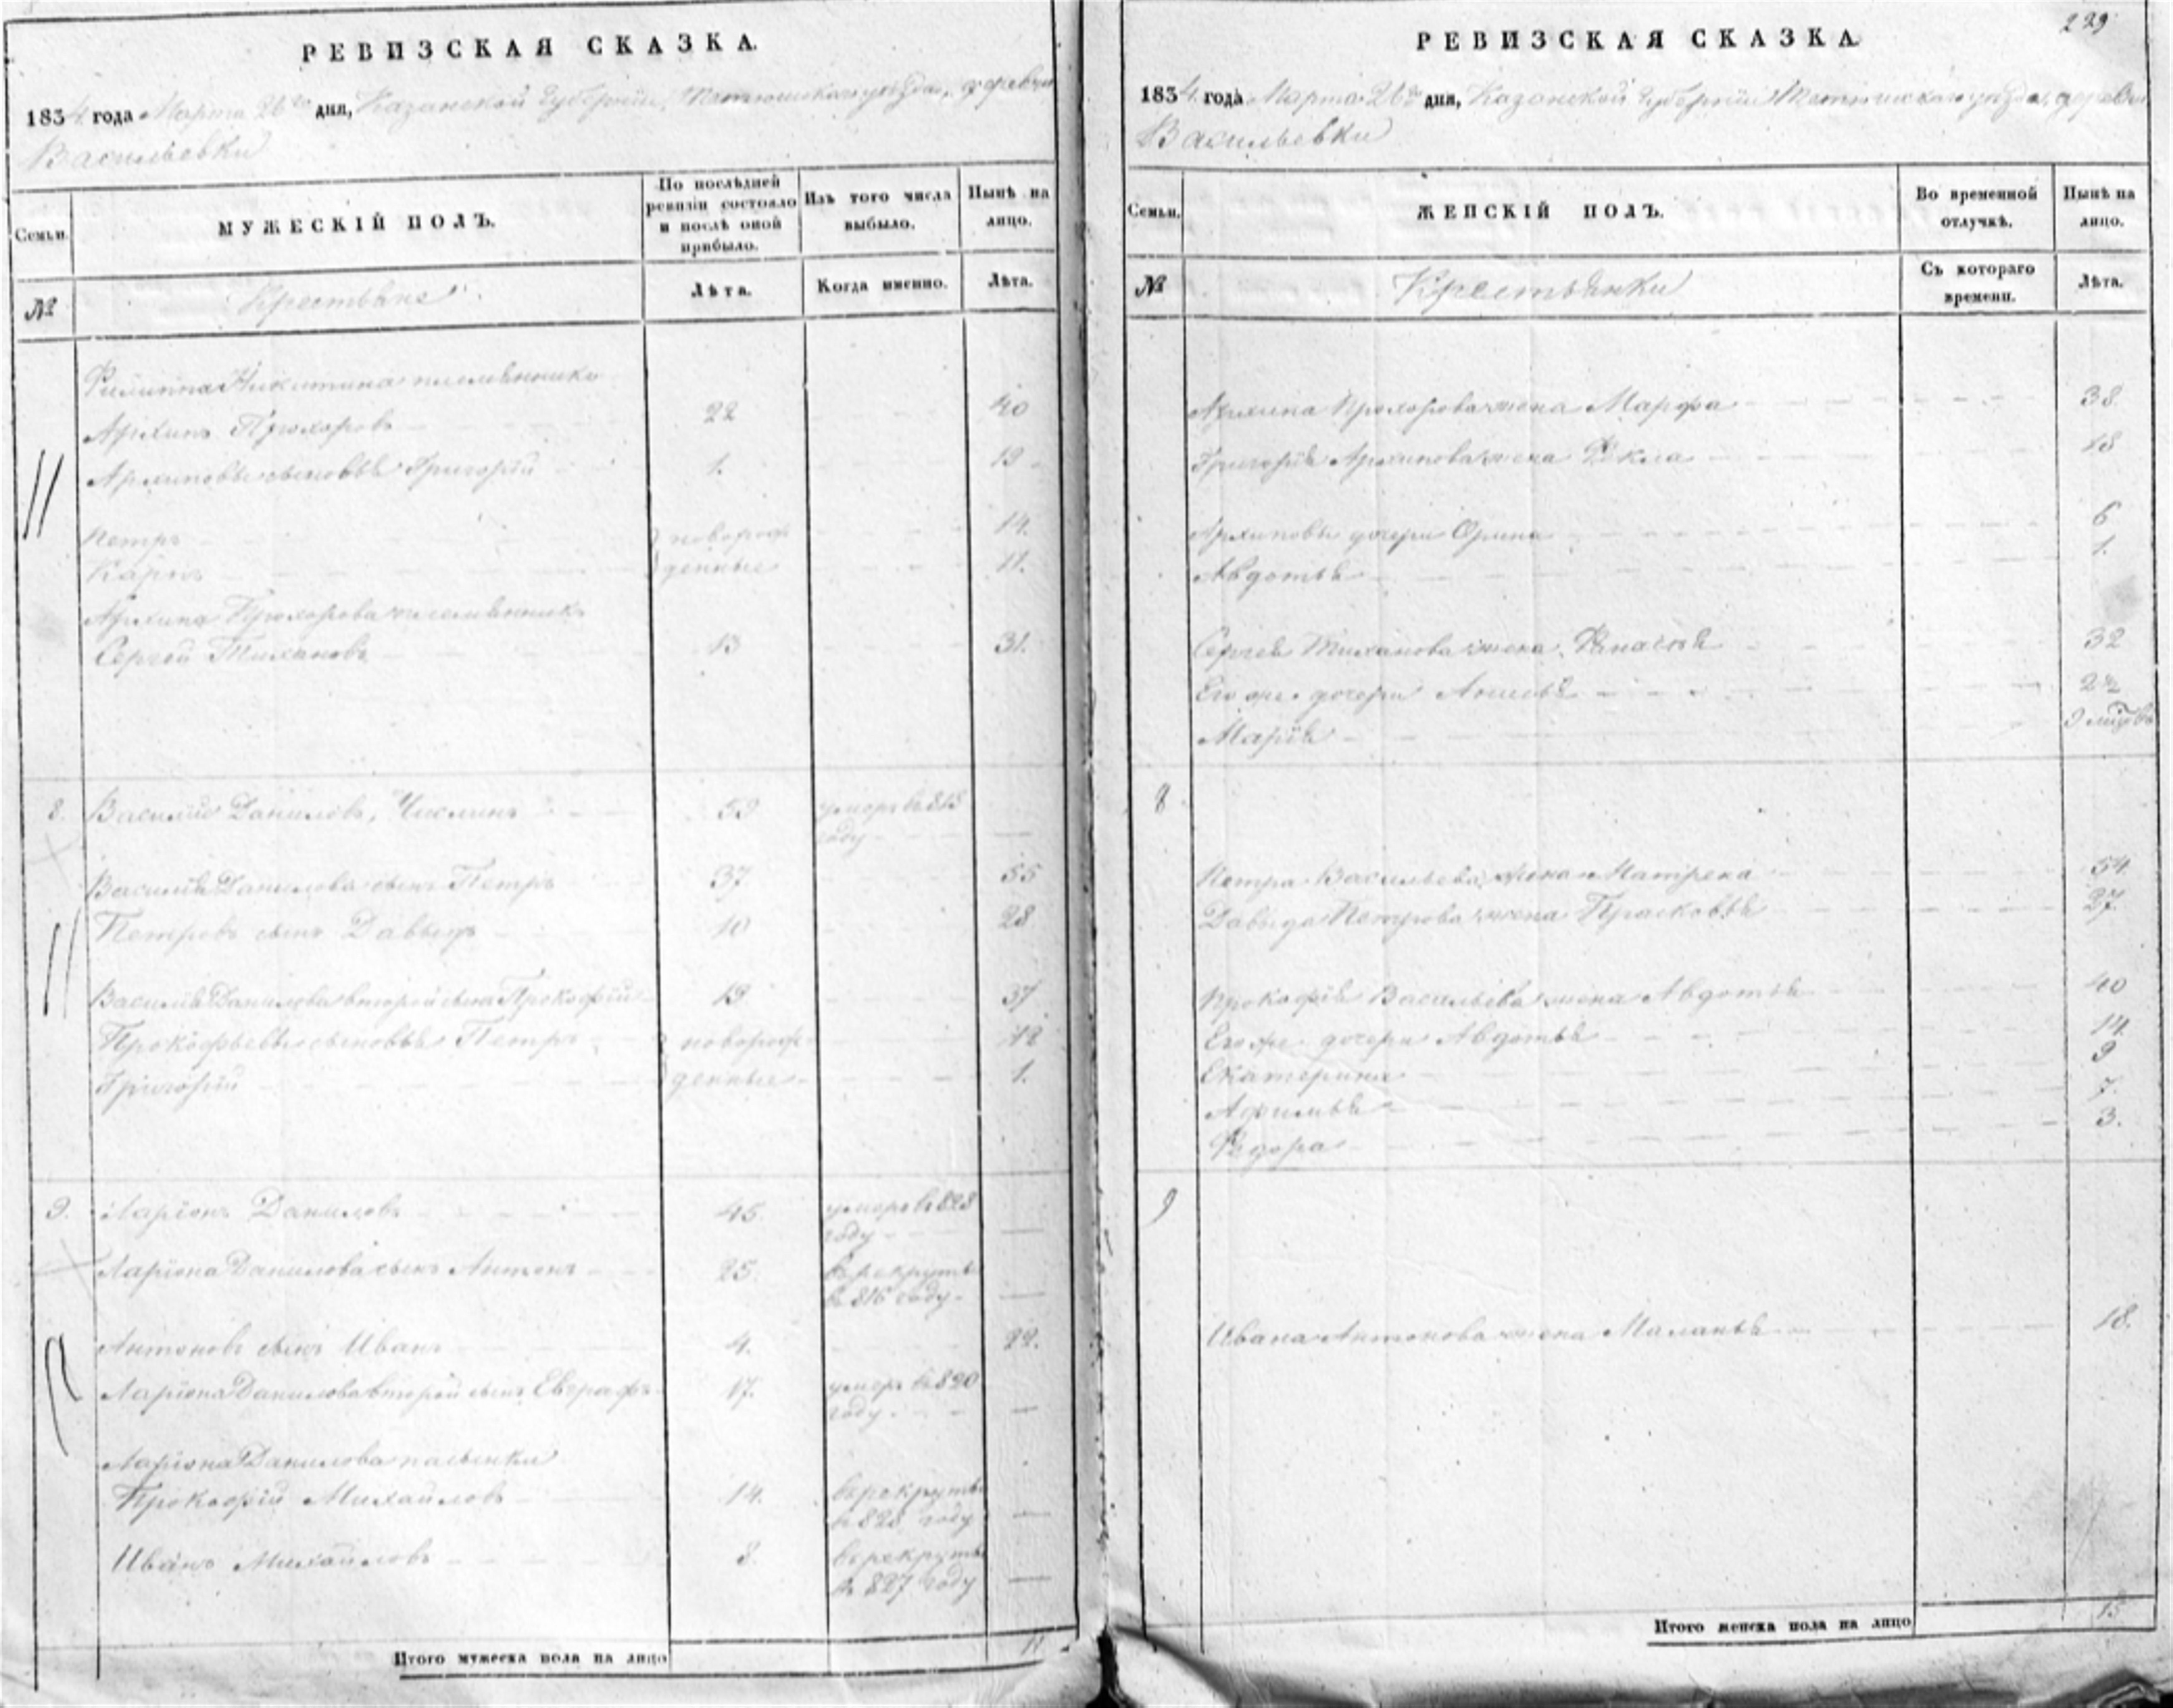 РЕВИЗСКАЯ СКАЗКА.
1834 года Марта 26го дня, Казанской Губернiи, Тетюшскаго уѣзда, деревни
Васильевки
Семьи.
МУЖЕСКIЙ ПОЛЪ.
По послѣдней ревизiи состояло и послѣ оной прибыло.
Изъ того числа выбыло.
Нынѣ на лицо.
№
Крестьяне
Лѣта.
Когда именно.
Лѣта.
Филиппа Никитина племянники
Архипъ Прохоровъ 22 40
Архиповы сыновья Григорiй 1. 19
Петръ новорож 14.
Карпъ денные 11.
Архипа Прохорова племянникъ
Сергей Тихановъ 13 31.
8. Василiй Даниловъ, Числинъ 59 умеръ въ 818
году
Василiя Данилова сынъ Петръ 37. 55
Петровъ сынъ Давыдъ 10 28
Василiя Данилова второй сынъ Прокофiй 19 37
Прокофьевы сыновья Петръ новорож 12
Григорiй денные 1.
9. Ларiонъ Даниловъ 45. умеръ въ 828
году
Ларiона Данилова сынъ Антонъ 25. въ рекруты
въ 816 году
Антоновъ сынъ Иванъ 4. 22.
Ларiона Данилова второй сынъ Евграфъ 17. умеръ въ 820
году
Ларiона Данилова пасынки
Прокофiй Михайловъ 14. въ рекруты
въ 828 году
Иванъ Михайловъ 8. въ рекруты
въ 827 году
Итого мужеска пола на лицо 11
229
РЕВИЗСКАЯ СКАЗКА.
1834 года Марта 26го дня, Казанской Губернiи Тетюшскаго уѣзда, деревни
Васильевки
Семьи.
ЖЕНСКIЙ ПОЛЪ.
Во временной отлучкѣ.
Нынѣ на лицо.
№
Крестьянки
Съ котораго времени.
Лѣта.
Архипа Прохорова жена Марфа 38.
Григорiя Архипова жена Фекла 18
Архиповы дочери Орина 6
Авдотья 1.
Сергея Тиханова жена 32
Его же дочери
Марiя
8
Петра Васильева жена Матрена 54.
Давыда Петрова жена Прасковья 27.
Прокофiя Васильева жена Авдотья 40
Его же дочери Авдотья 14.
Екатерина 9
Афимья 7.
Федора 3.
9
Ивана Антонова жена Маланья 18.
Итого женска пола на лицо 15